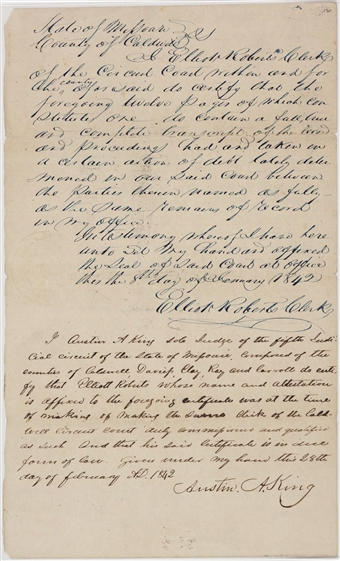 State of Missouri
County of Caldwell
I Elliott Roberts Clerk
of the Circuit Court within and for
the county aforesaid do certify that the
foregoing twelve pages of which con
stitutes one do contain a full true
and complete transcript of the record
and Proceedings had and taken in
a certain action of debt lately deter
mened in our said Court between
the Parties therein named as fully
as the same remains of record
in my office
In testimony whereof I have here
unto set my hand and affixed
the Seal of said Court at office
this the 8th day of 1842
Elliott Roberts Clerk
I Austin A King sole Judge of the fifth Judi
cial circuit of the State of Missouri, composed of the
counties of Caldwell Daviess, Clay, Ray and Carroll do certi
fy that Elliott Roberts whose name and attestation
is affixed to the foregoing certificate was at the time
of making of making the same Clerk of the Cald
well Circuit court duly commissioned and qualified
as such And that his said Certificate is in due
form of law. Given under my hand this 28th
day of february AD. 1842
Austin A. King